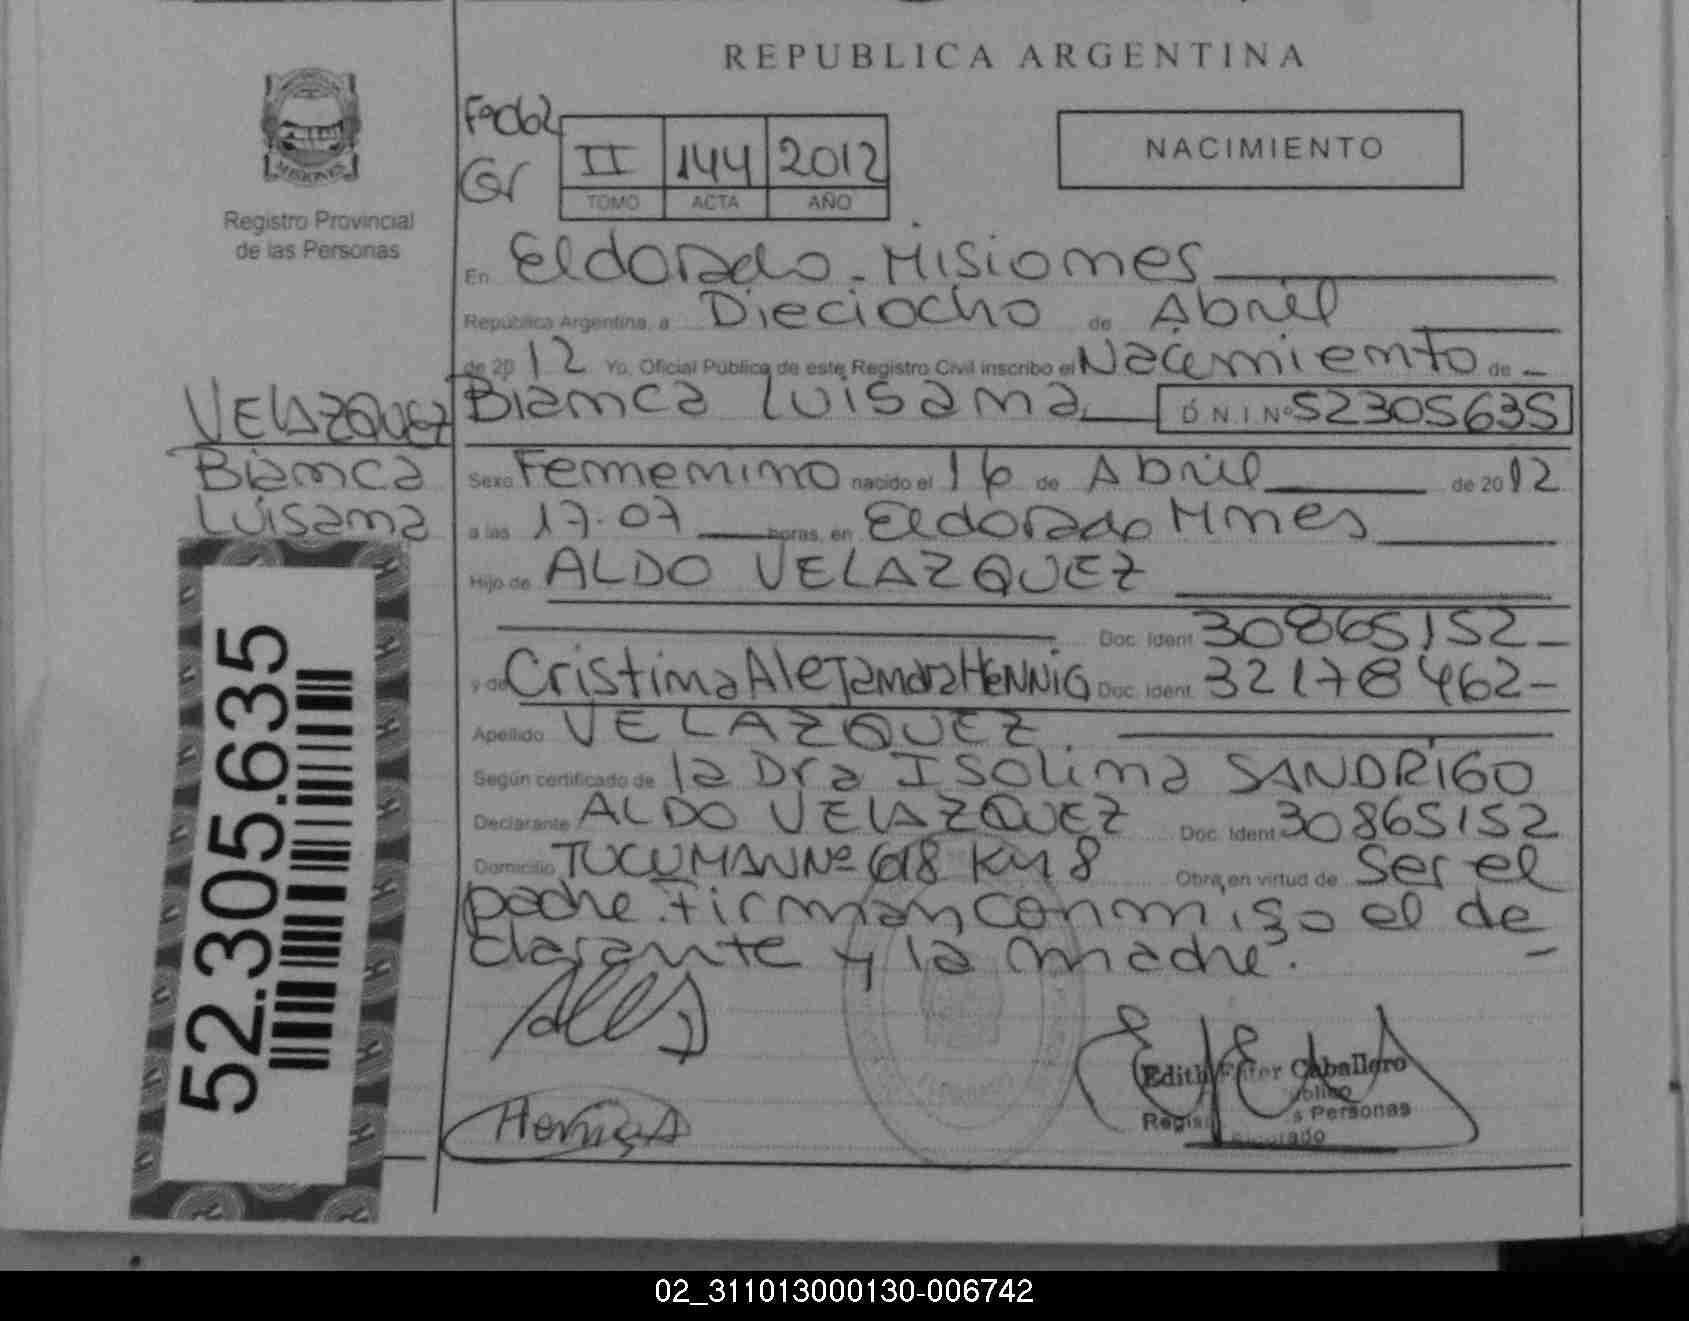 REPUBLICA ARGENTINA
NACIMIENTO
II 144 2012
TOMO ACTA AÑO
MISIONES
Registro Provincial
de las Personas
En Eldorado - Misiones
República Argentina, a Dieciocho de Abril
de 2012 Yo, Oficial Público de este Registro Civil inscribo el Nacimiento de
VELAZQUEZ
Bianca Luisana
Bianca Luisana D.N.I. Nº 52305635
Sexo Femenino nacido el 16 de Abril de 2012
a las 17.07 horas, en Eldorado Mnes
Hijo de ALDO VELAZQUEZ
Doc. Ident. 30865152
y de Cristina Alejandra HENNIG Doc. Ident. 32178462
Apellido VELAZQUEZ
Según certificado de la Dra Isolina SANDRIGO
Declarante ALDO VELAZQUEZ Doc. Ident. 30865152
Domicilio TUCUMAN Nº 618 KM 8 Obra en virtud de Ser el
padre. Firman conmigo el de
clarante y la madre.
52.305.635
Edith Caballero
s Personas
02_311013000130-006742